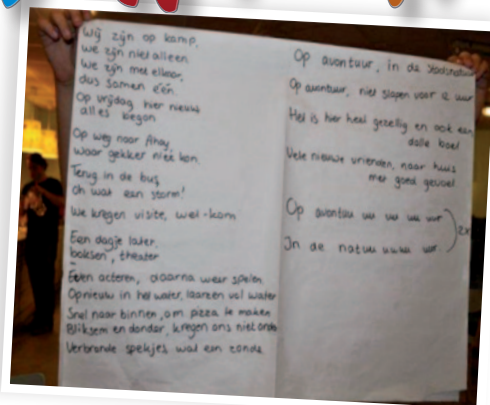 Wij zijn op kamp,
we zijn niet alleen
We zijn met elkaar,
dus samen één.
Op vrijdag hier nieuws
alles begon
Op weg naar Ahoy,
waar gekker niet kon.
Terug in de bus,
oh wat een storm!
We kregen visite, wel-kom
Een dagje later.
boksen, theater
Even acteren, daarna weer spelen
Opnieuw in het water, laarzen vol water
Snel naar binnen, om pizza te maken
Bliksem en donder, kregen ons niet onder
Verbrande spekjes wat een zonde
Op avontuur, in de stadsnatuur
Op avontuur, niet slapen voor 12 uur
Het is hier heel gezellig en ook een
dolle boel
Vele nieuwe vrienden, naar huis
met goed gevoel
Op avontuu uu uu uu uur
In de natuu uuuu uur
2x